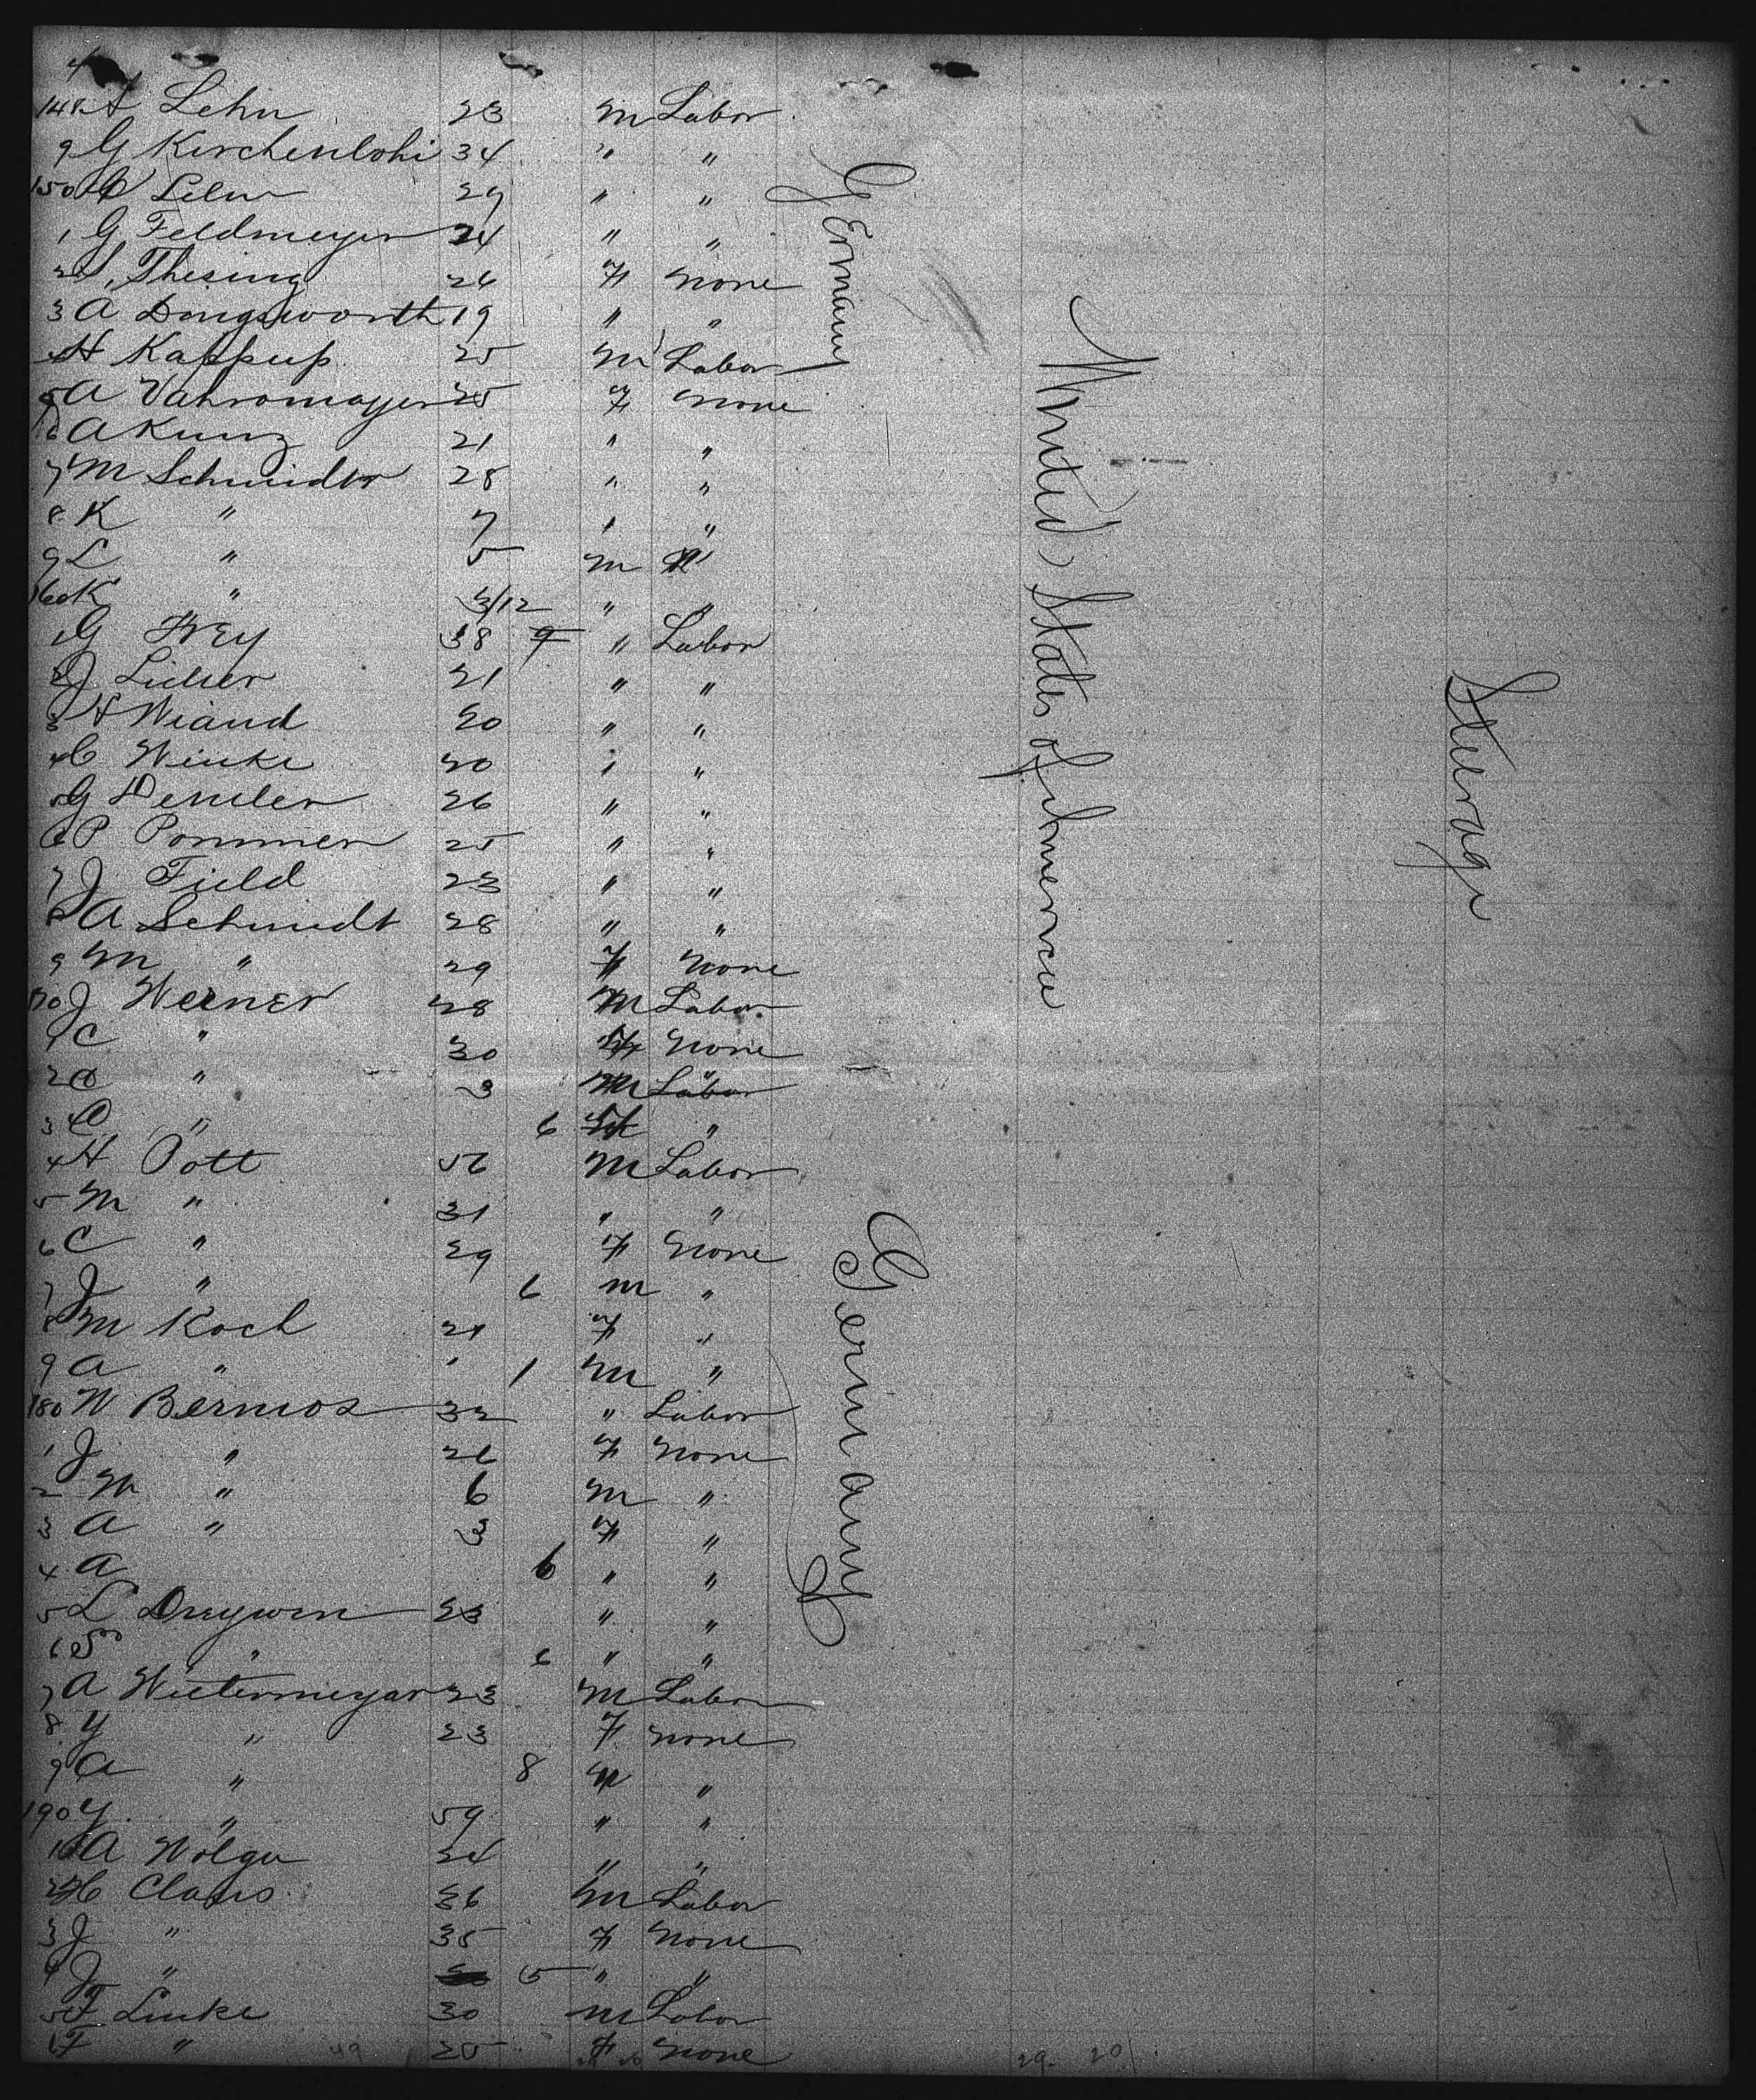 4
148 A Lehn 23 M Labor
9 G Kirchenlohi 34 " "
150 29 " "
1 G Feldmeyer 24 " "
2 Thesing 26 F None
3 A Dongsworth 19 " "
4 H Kappup 25 M Labor
5 A Vahromayer 25 F None
6 A Kunz 21 " "
7 M Schmidt 28 " "
8 K " 7 " "
9 L " 5 M "
160 K " 3/12 " "
1 G Frey 38 " Labor
2 J Lieber 21 " "
3 H Wiand 20 " "
4 C Winke 20 " "
5 G 26 " "
6 P Pommer 25 " "
7 J Field 23 " "
8 A Schmidt 28 " "
9 M " 29 F None
170 J Werner 28 M Labor
1 C " 30 F None
2 " 3 M Labor
3 " 6 "
4 H Pott 56 M Labor
5 M " 31 " "
6 C " 29 F None
7 J " 6 M "
8 M Koch 21 F "
9 A " 1 M "
180 W Bermos 32 " Labor
1 J " 26 F None
2 M " 6 M "
3 A " 3 F "
4 A 6 " "
5 L Dreywen 23 " "
6 " 6 " "
7 A Wietermeyar 23 M Labor
8 Y " 23 F None
9 A " 8 M "
190 Y " 59 " "
1 A Wolgu 24 " "
2 H Claus 36 M Labor
3 J " 35 F None
4 J " 5 " "
5 F Linke 30 M Labor
6 F " 25 F None
Germany
Germany
United States of America
Steerage
49
29 20